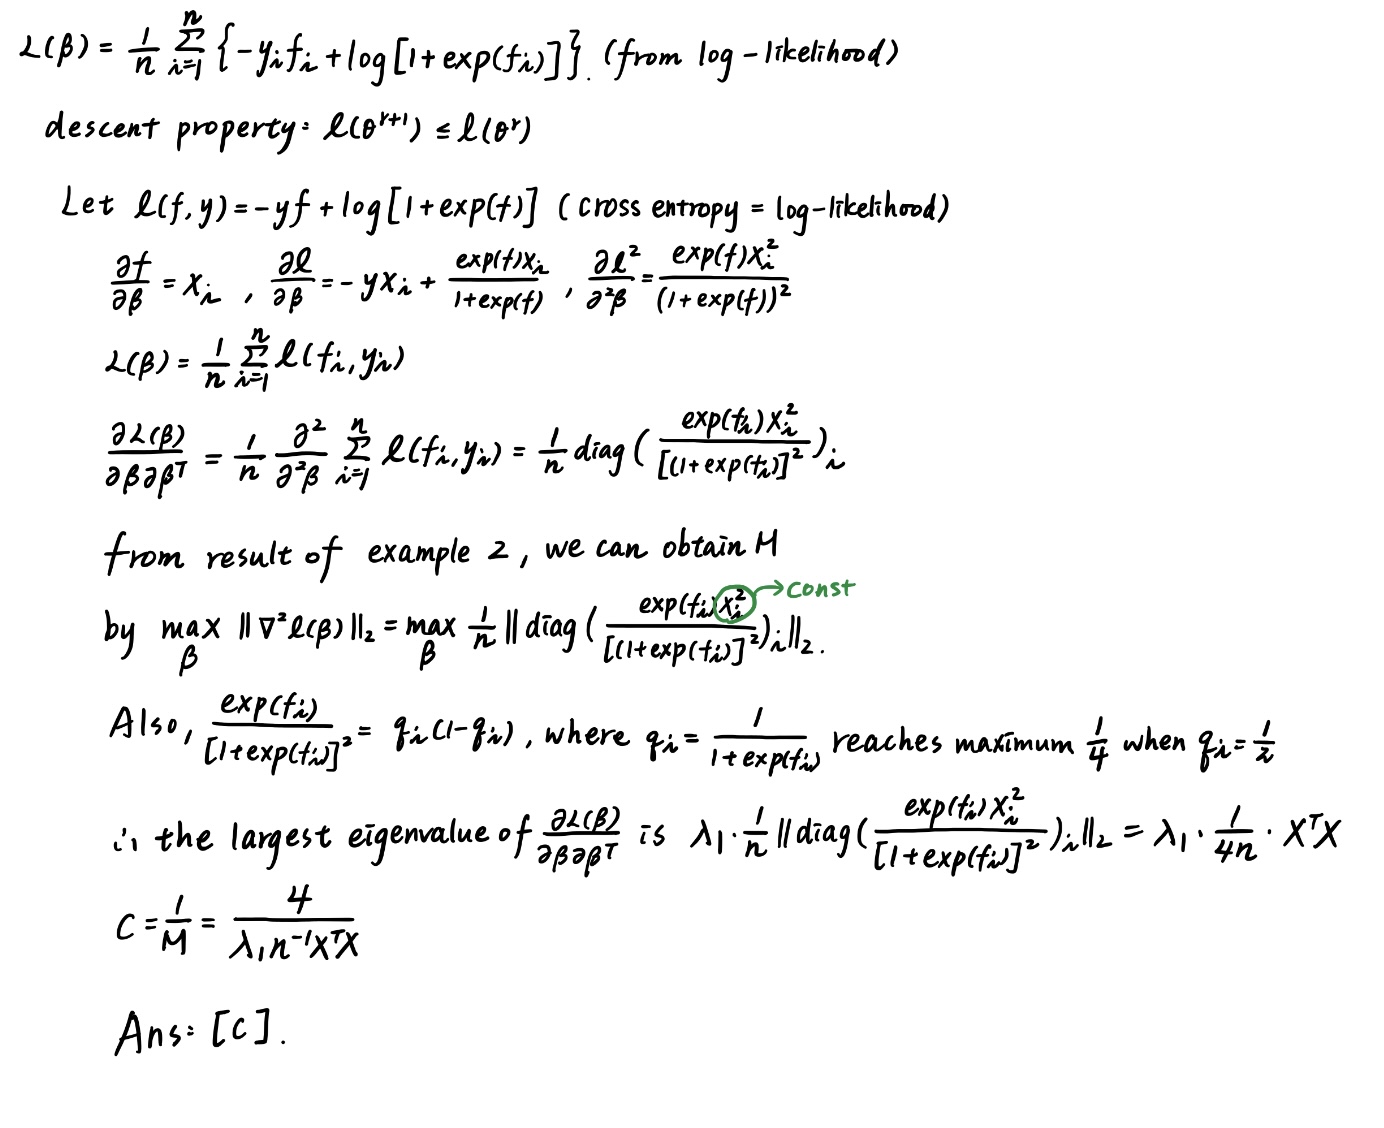 L(β) = 1/n Σ_{i=1}^{n} {-y_i f_i + log[1 + exp(f_i)]}. (from log-likelihood)
descent property: l(θ^{r+1}) ≤ l(θ^r)
Let l(f, y) = -yf + log[1 + exp(f)] (cross entropy = log-likelihood)
∂f/∂β = x_i , ∂l/∂β = -yx_i + exp(f)x_i/1+exp(f) , ∂l²/∂²β = exp(f)x_i²/(1+exp(f))²
L(β) = 1/n Σ_{i=1}^{n} l(f_i, y_i)
∂L(β)/∂β∂β^T = 1/n ∂²/∂²β Σ_{i=1}^{n} l(f_i, y_i) = 1/n diag(exp(f_i)x_i²/[(1+exp(f_i)]²)_i
from result of example 2, we can obtain M
by max_β ||∇²l(β)||_2 = max_β 1/n ||diag(exp(f_i)x_i²/[(1+exp(f_i)]²)_i||_2. → const
Also, exp(f_i)/[1+exp(f_i)]² = q_i(1-q_i), where q_i = 1/1+exp(f_i) reaches maximum 1/4 when q_i = 1/2
∴ the largest eigenvalue of ∂L(β)/∂β∂β^T is λ_1 · 1/n ||diag(exp(f_i)x_i²/[1+exp(f_i)]²)_i||_2 = λ_1 · 1/4n · X^T X
C = 1/M = 4/λ_1 n^{-1} X^T X
Ans: [C].